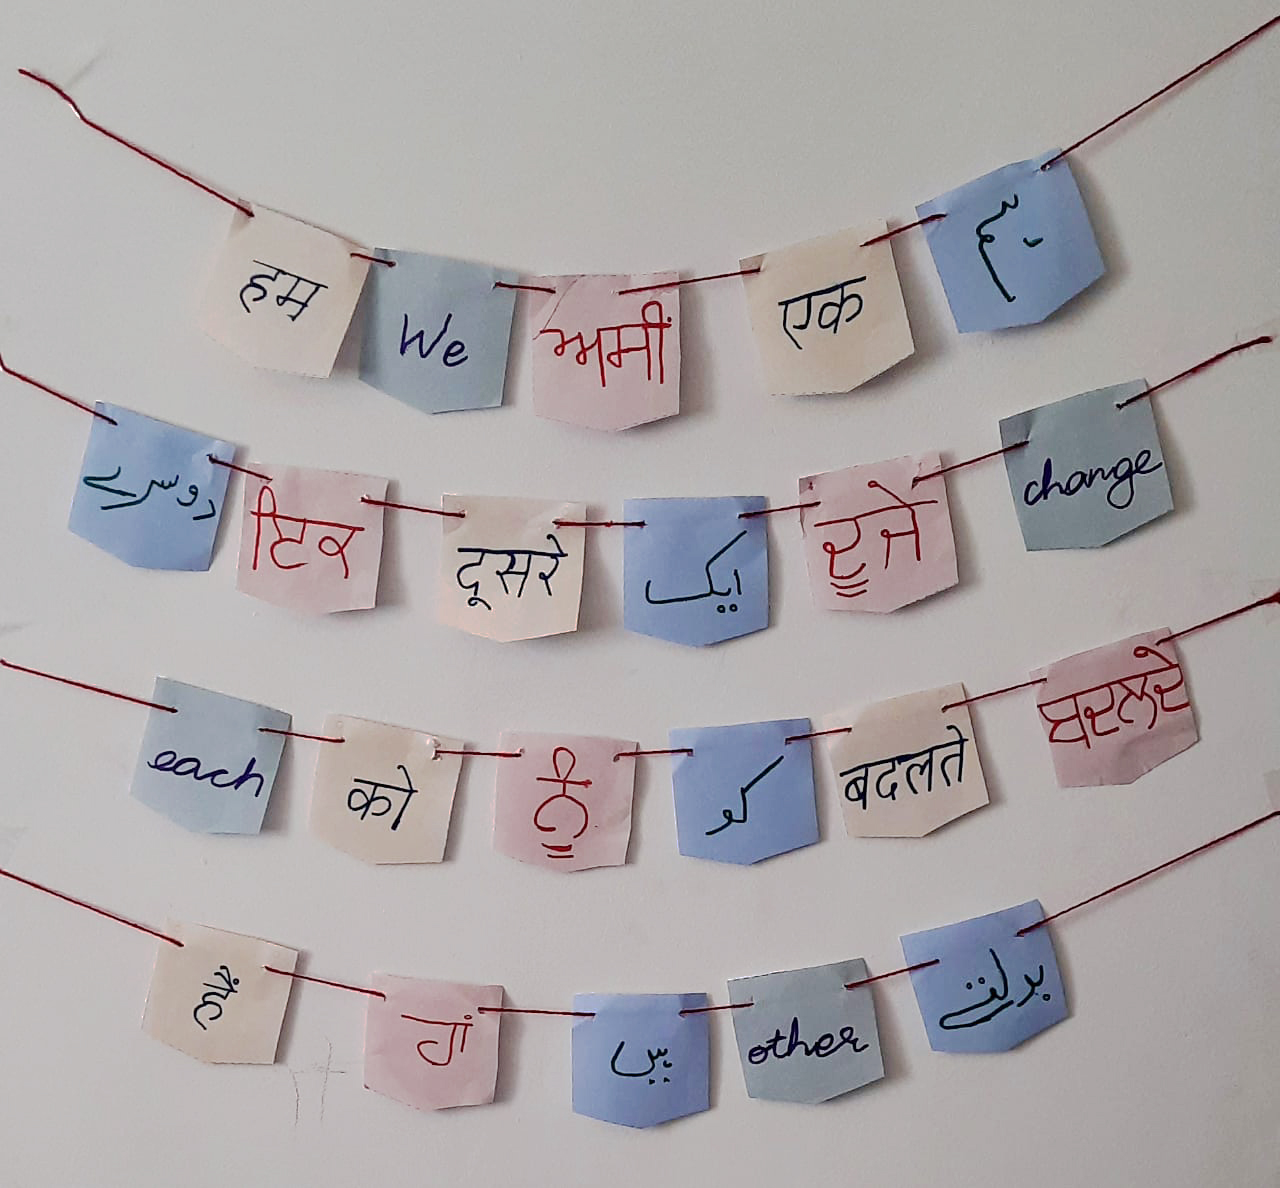 हम We ਅਸੀਂ एक ہم
دوسرے ਇਕ दूसरे ایک ਦੂਜੇ change
each को ਨੂੰ کو बदलते ਬਦਲਦੇ
हैं ਹਾਂ ہیں other بدلتے